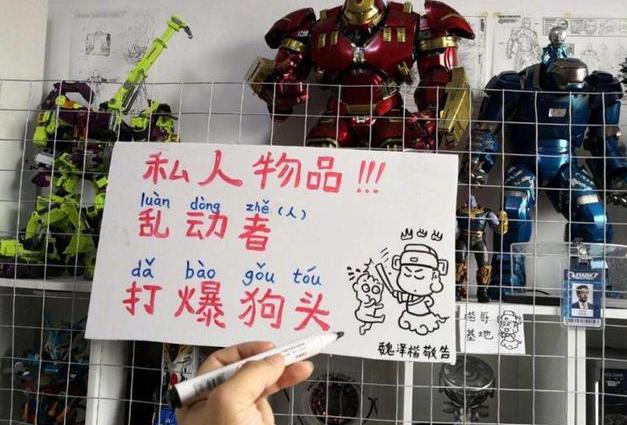 私人物品!!!
luàn dòng zhě（人）
乱动者
dǎ bào gǒu tóu
打爆狗头
魏泽楷敬告
STARK
楷哥
基地